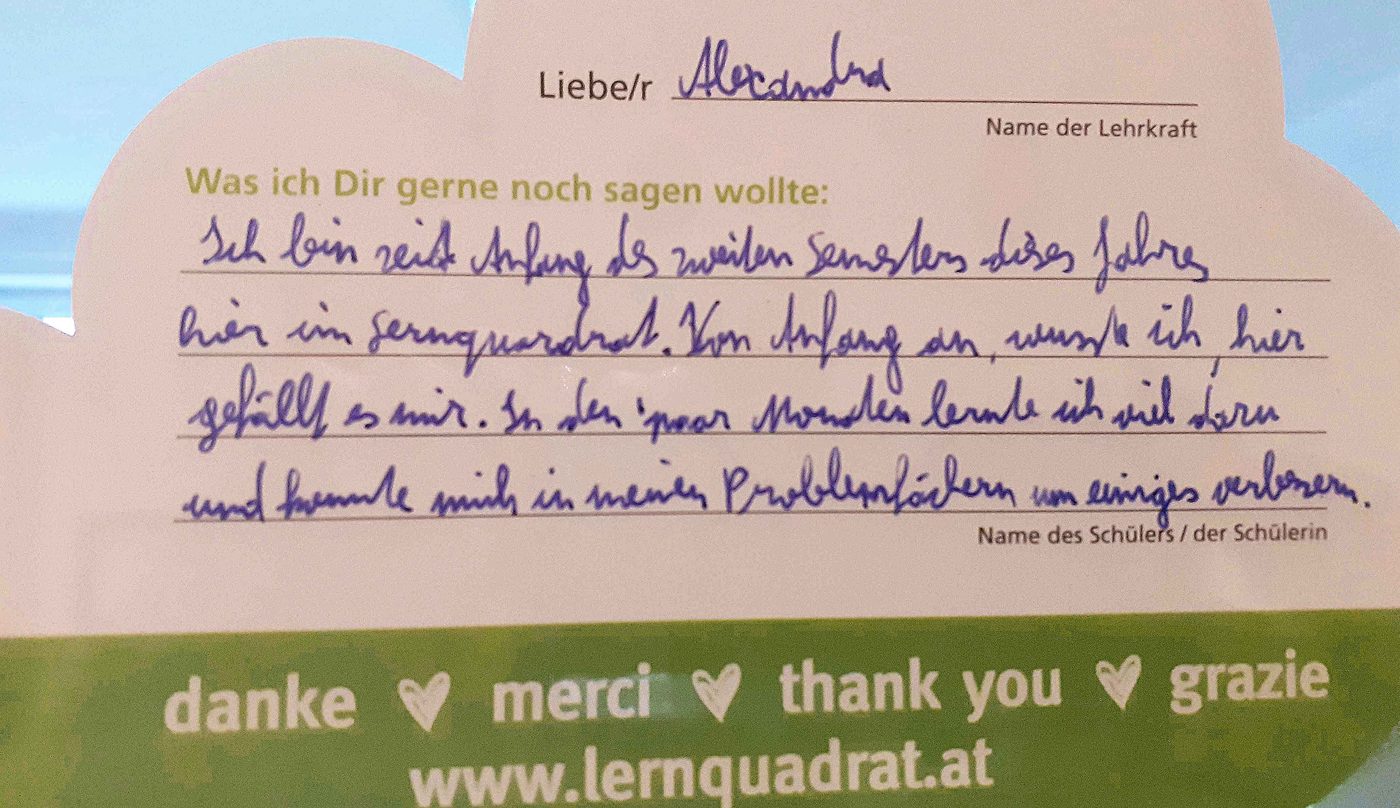 Liebe/r Alexandra
Name der Lehrkraft
Was ich Dir gerne noch sagen wollte:
Ich bin seit Anfang des zweiten Semesters dieses Jahres
hier im Lernquardrat. Von Anfang an, wusste ich, hier
gefällt es mir. In den paar Monaten lernte ich viel dazu
und konnte mich in meinen Problemfächern um einiges verbessern.
Name des Schülers / der Schülerin
danke merci thank you grazie
www.lernquadrat.at